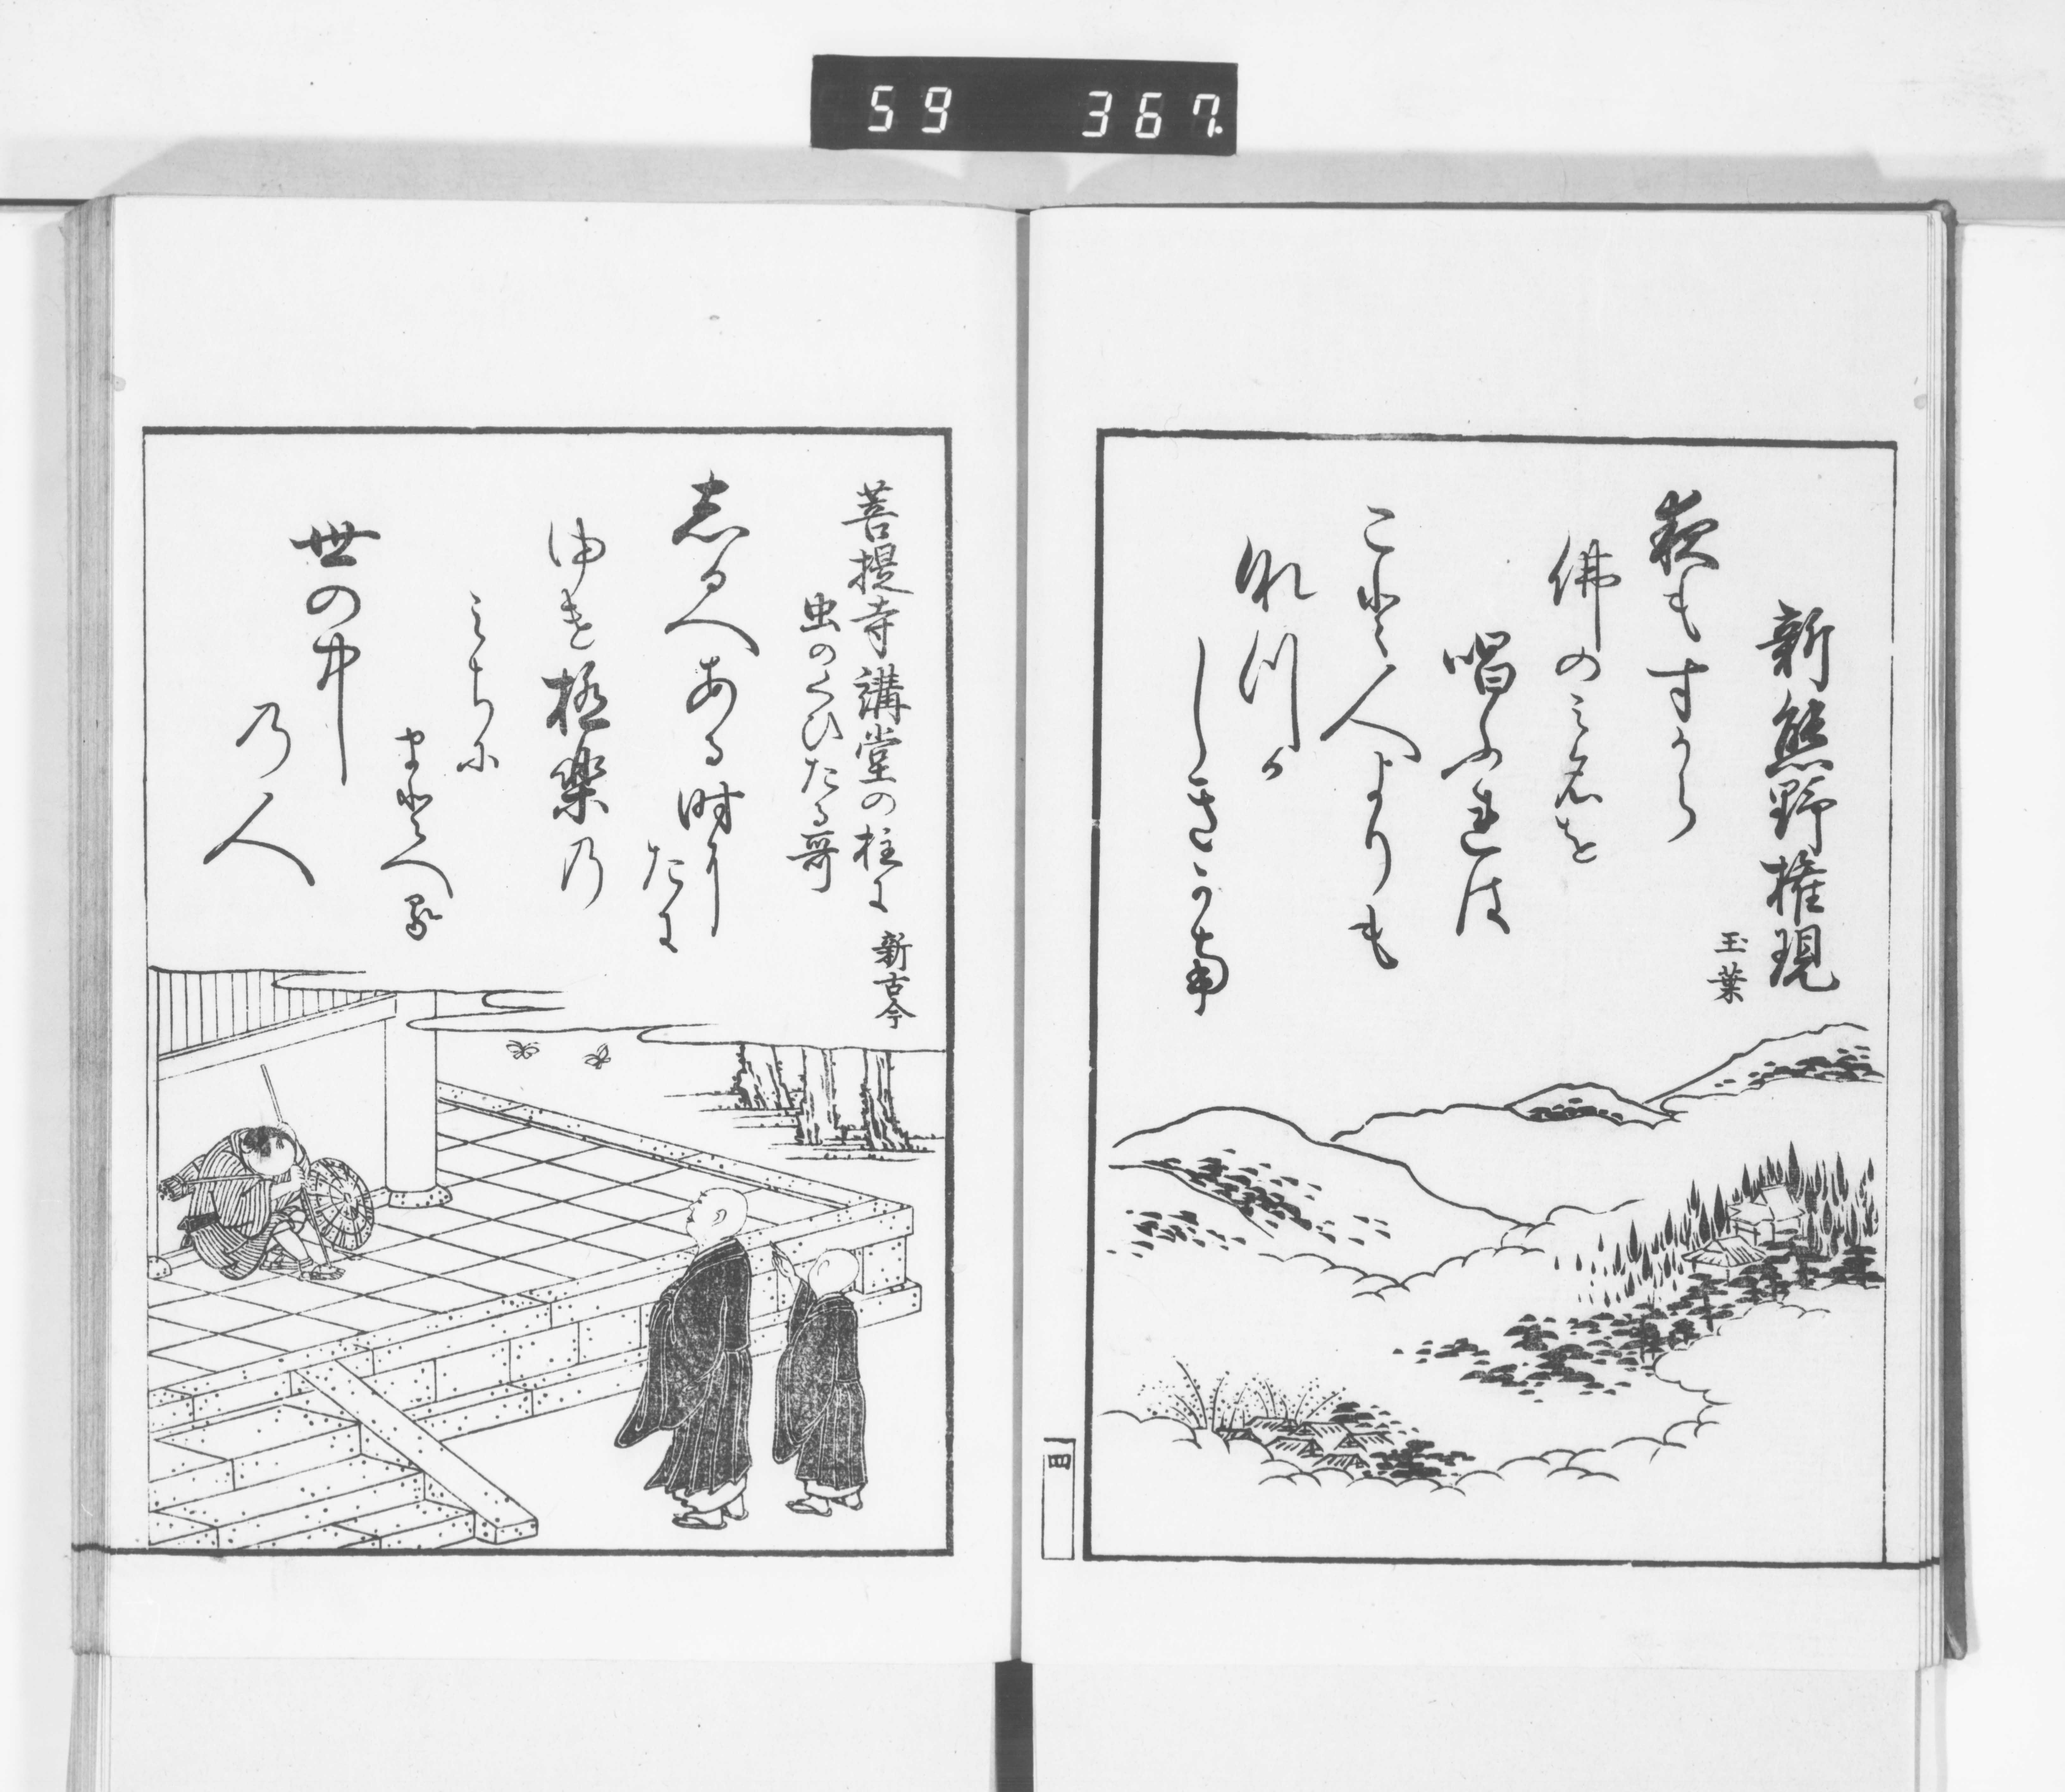 59 367
新熊野権現
玉葉
夜もすから
佛のミ名を
唱ふれは
こと人よりも
なつか
しきかな
四
菩提寺講堂の柱に
虫のくひたる哥
新古今
志るへある時に
たに
ゆき極楽の
ミちに
まとへる
世の中
乃人